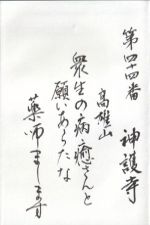 第四十四番
神護寺
高雄山
衆生の病癒さんと
願いあらたな
薬師まします